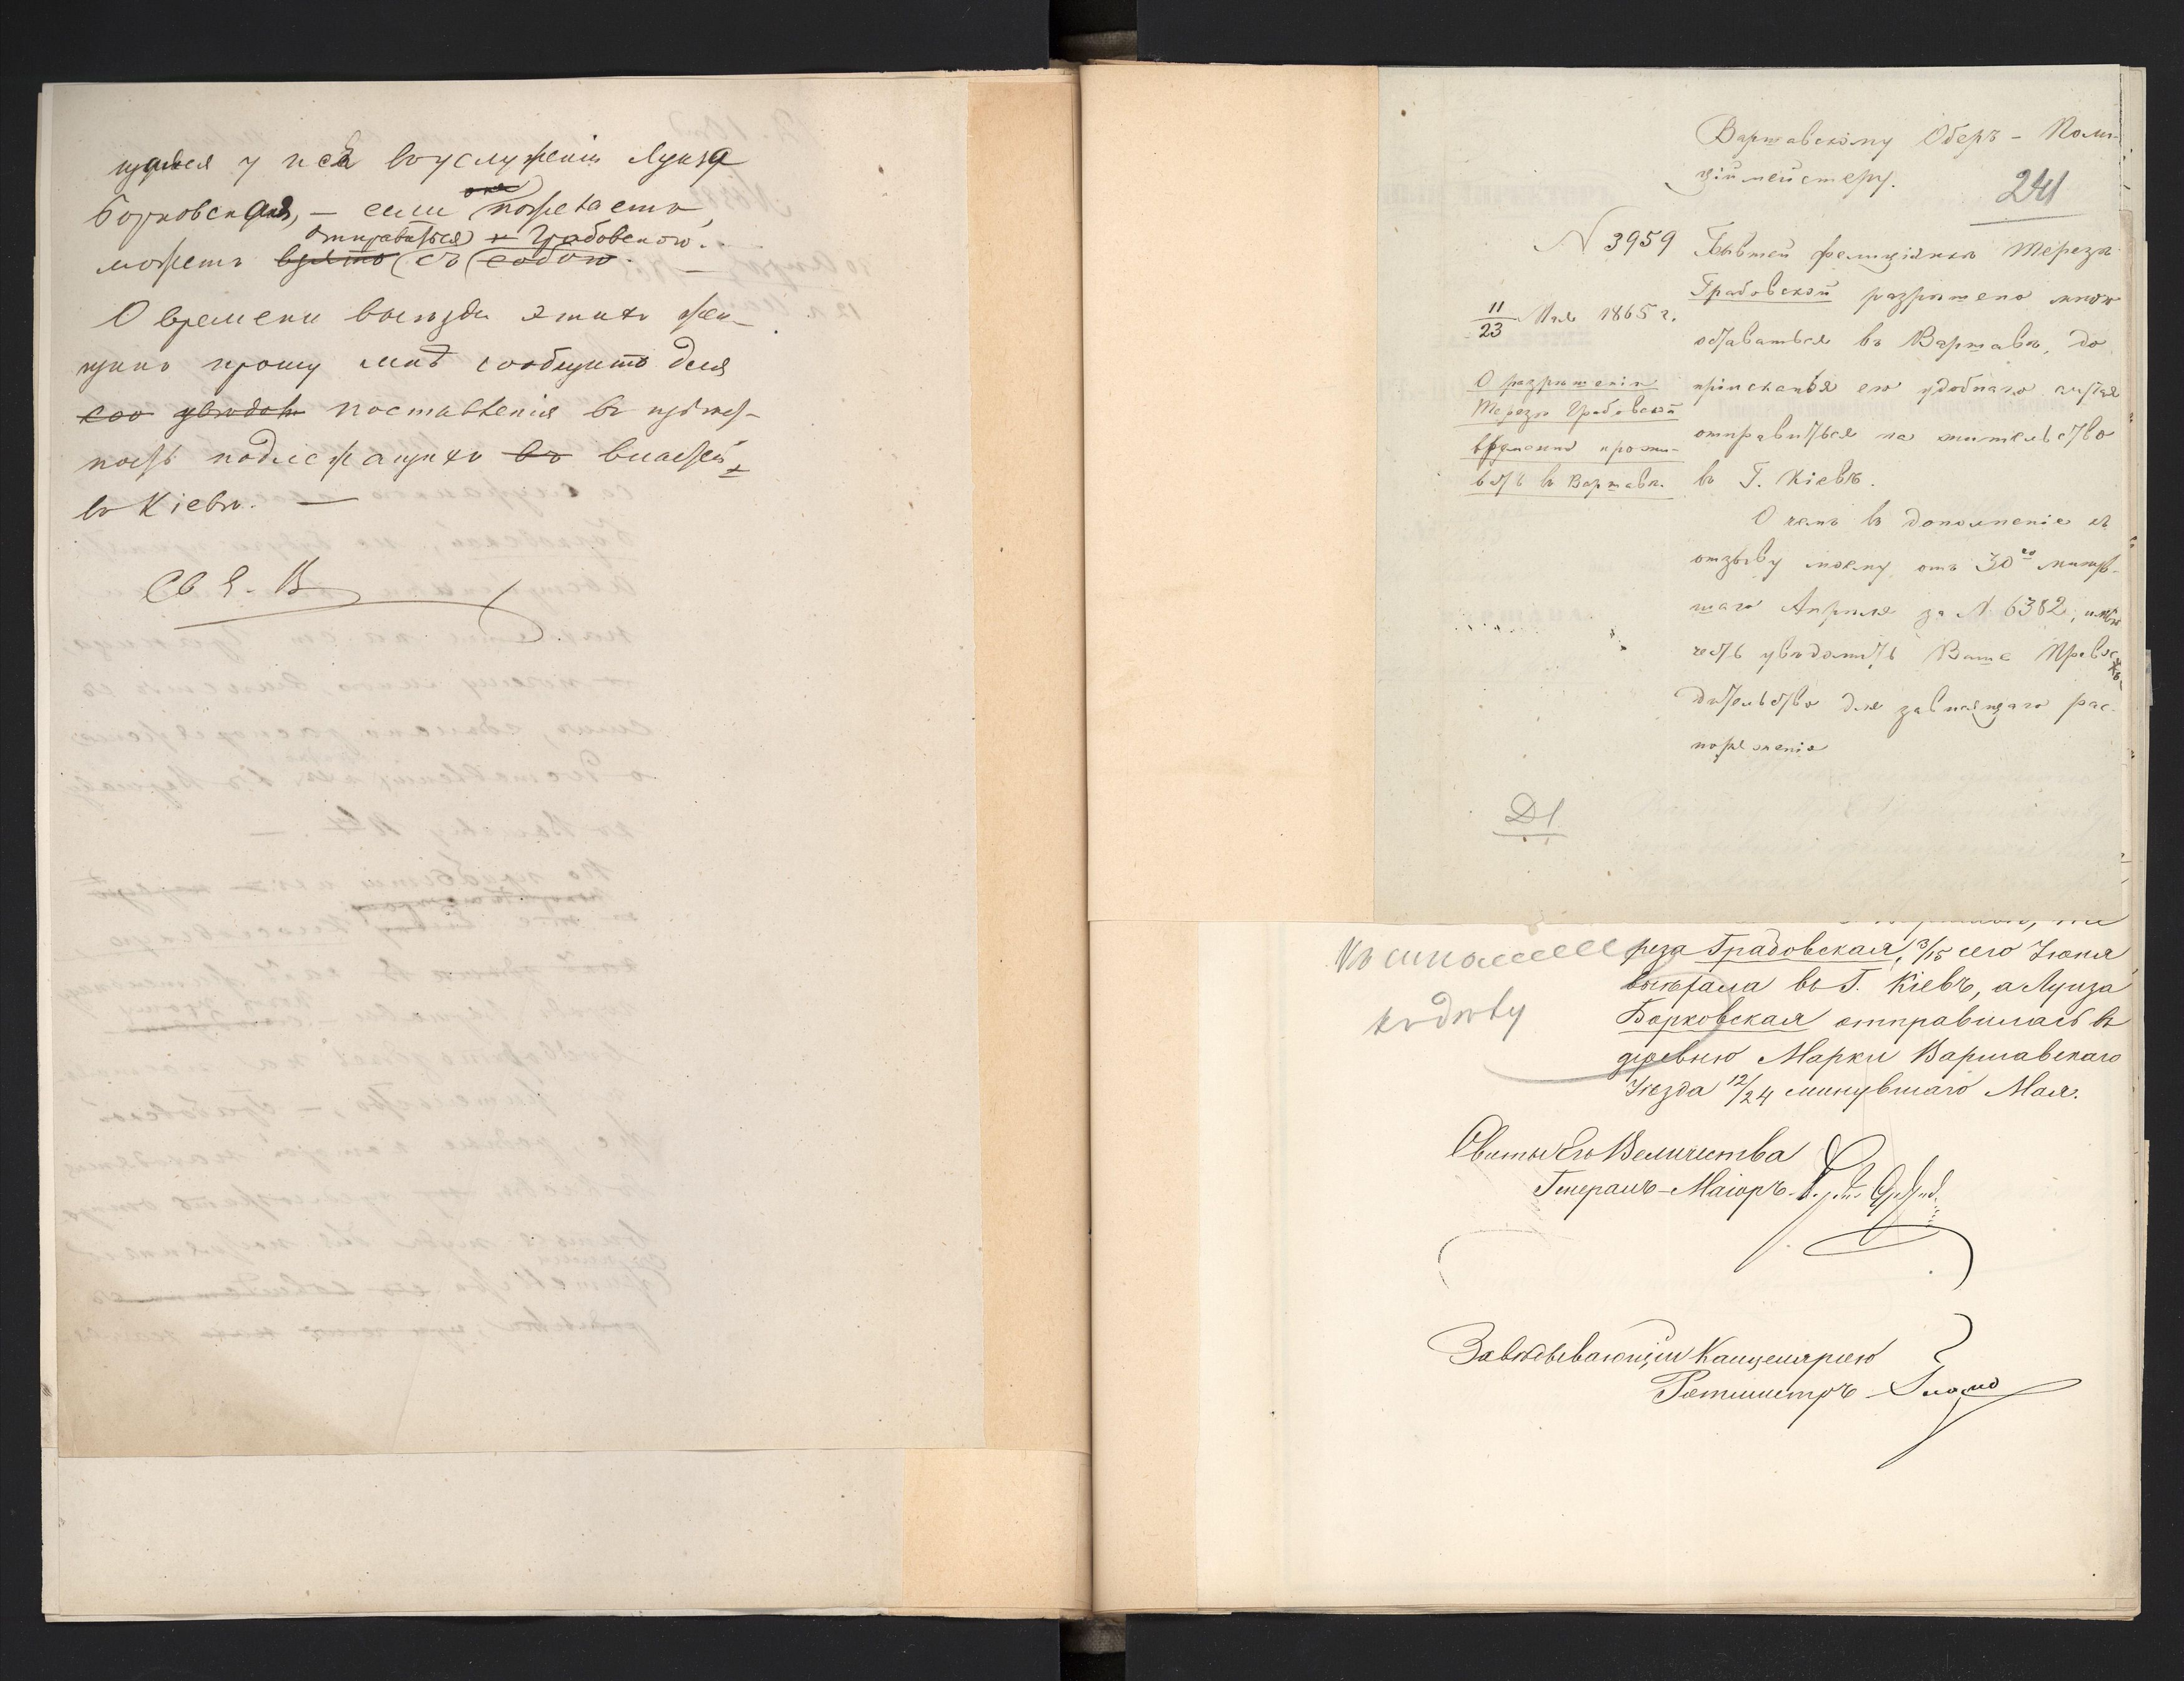 щаяся у нея въ услуженіи Луиза
она
Борковская, – если пожелаетъ,
отправиться съ Грабовскою.
можетъ взять съ собою.
О времени выезда этихъ жен-
щинъ прошу мнѣ сообщить для
его уведом поставленія въ извѣст-
ность подлежащихъ въ властей
въ Кіевѣ. —
Св. Е. В.
Варшавскому Оберъ-Поли-
ційместеру.
241
№ 3959
11/23 Мая 1865 г.
О разрѣшеніи
Терезѣ Грабовской
временно прожи-
вать въ Варшавѣ.
Бывшей фелиціянкѣ Терезѣ
Грабовской разрѣшено мною
оставаться въ Варшавѣ, до
пріисканія ею удобнаго случая
отправиться на жительство
въ Г. Кіевъ.
О чемъ въ дополненіе къ
отзыву моему отъ 30го минув-
шаго Апрѣля за № 6382, имѣю
честь увѣдомить Ваше Превосхо-
дительство для зависящаго рас-
поряженія
Д1
реза Градовская, 3/15 сего Іюня
выѣхала въ Г. Кіевъ, а Луиза
Борковская отправилась въ
деревню Марки Варшавскаго
Уѣзда 12/24 минувшаго Мая.
къ дѣлу
Свиты Его Величества
Генералъ-Маіоръ
Завѣдывающій Канцеляріею
Ротмистръ